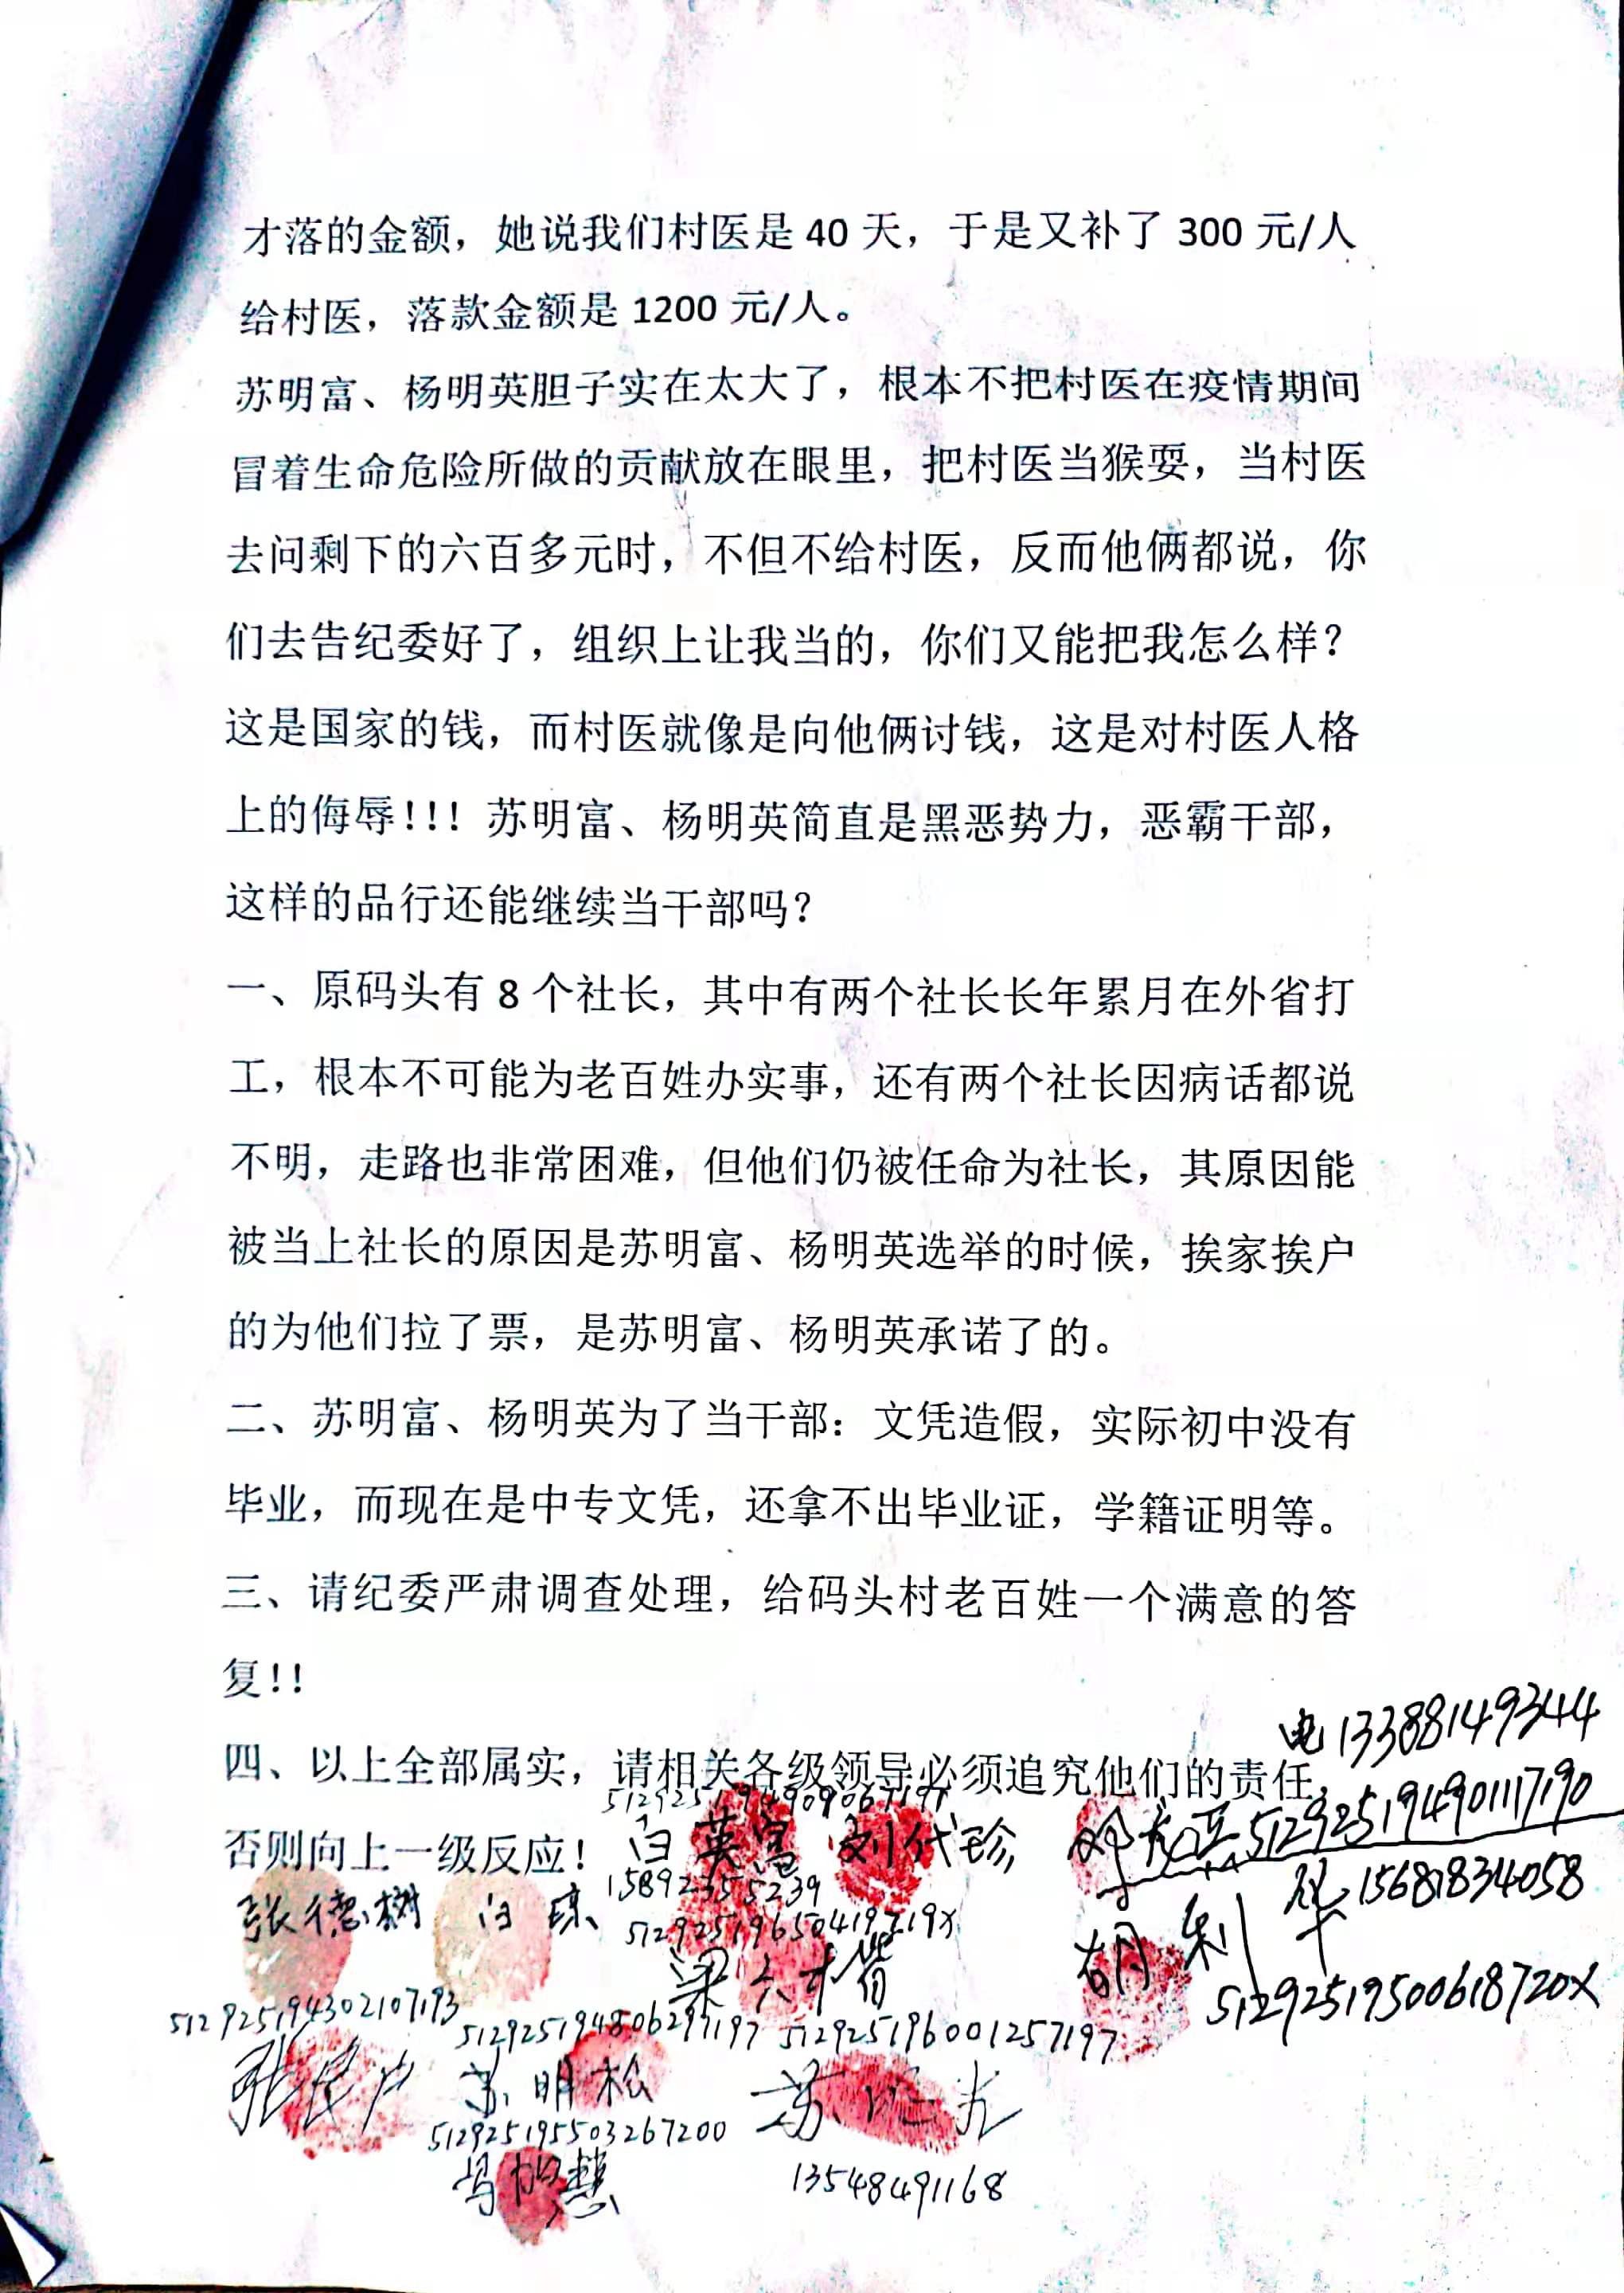 才落的金额，她说我们村医是 40 天，于是又补了 300 元/人
给村医，落款金额是 1200 元/人。
苏明富、杨明英胆子实在太大了，根本不把村医在疫情期间
冒着生命危险所做的贡献放在眼里，把村医当猴耍，当村医
去问剩下的六百多元时，不但不给村医，反而他俩都说，你
们去告纪委好了，组织上让我当的，你们又能把我怎么样？
这是国家的钱，而村医就像是向他俩讨钱，这是对村医人格
上的侮辱！！！苏明富、杨明英简直是黑恶势力，恶霸干部，
这样的品行还能继续当干部吗？
一、原码头有 8 个社长，其中有两个社长长年累月在外省打
工，根本不可能为老百姓办实事，还有两个社长因病话都说
不明，走路也非常困难，但他们仍被任命为社长，其原因能
被当上社长的原因是苏明富、杨明英选举的时候，挨家挨户
的为他们拉了票，是苏明富、杨明英承诺了的。
二、苏明富、杨明英为了当干部：文凭造假，实际初中没有
毕业，而现在是中专文凭，还拿不出毕业证，学籍证明等。
三、请纪委严肃调查处理，给码头村老百姓一个满意的答
复！！
电13388149344
四、以上全部属实，请相关各级领导必须追究他们的责任，
512925194909067191
512925194901117190
否则向上一级反应！
白英富 刘代珍
15892355239
15681834058
张德树 白琼
51292519650419719X
胡利华
51292519500618720X
512925194302107193
512925194806297197
512925196001257197
苏明松
512925195503267200
13548491168